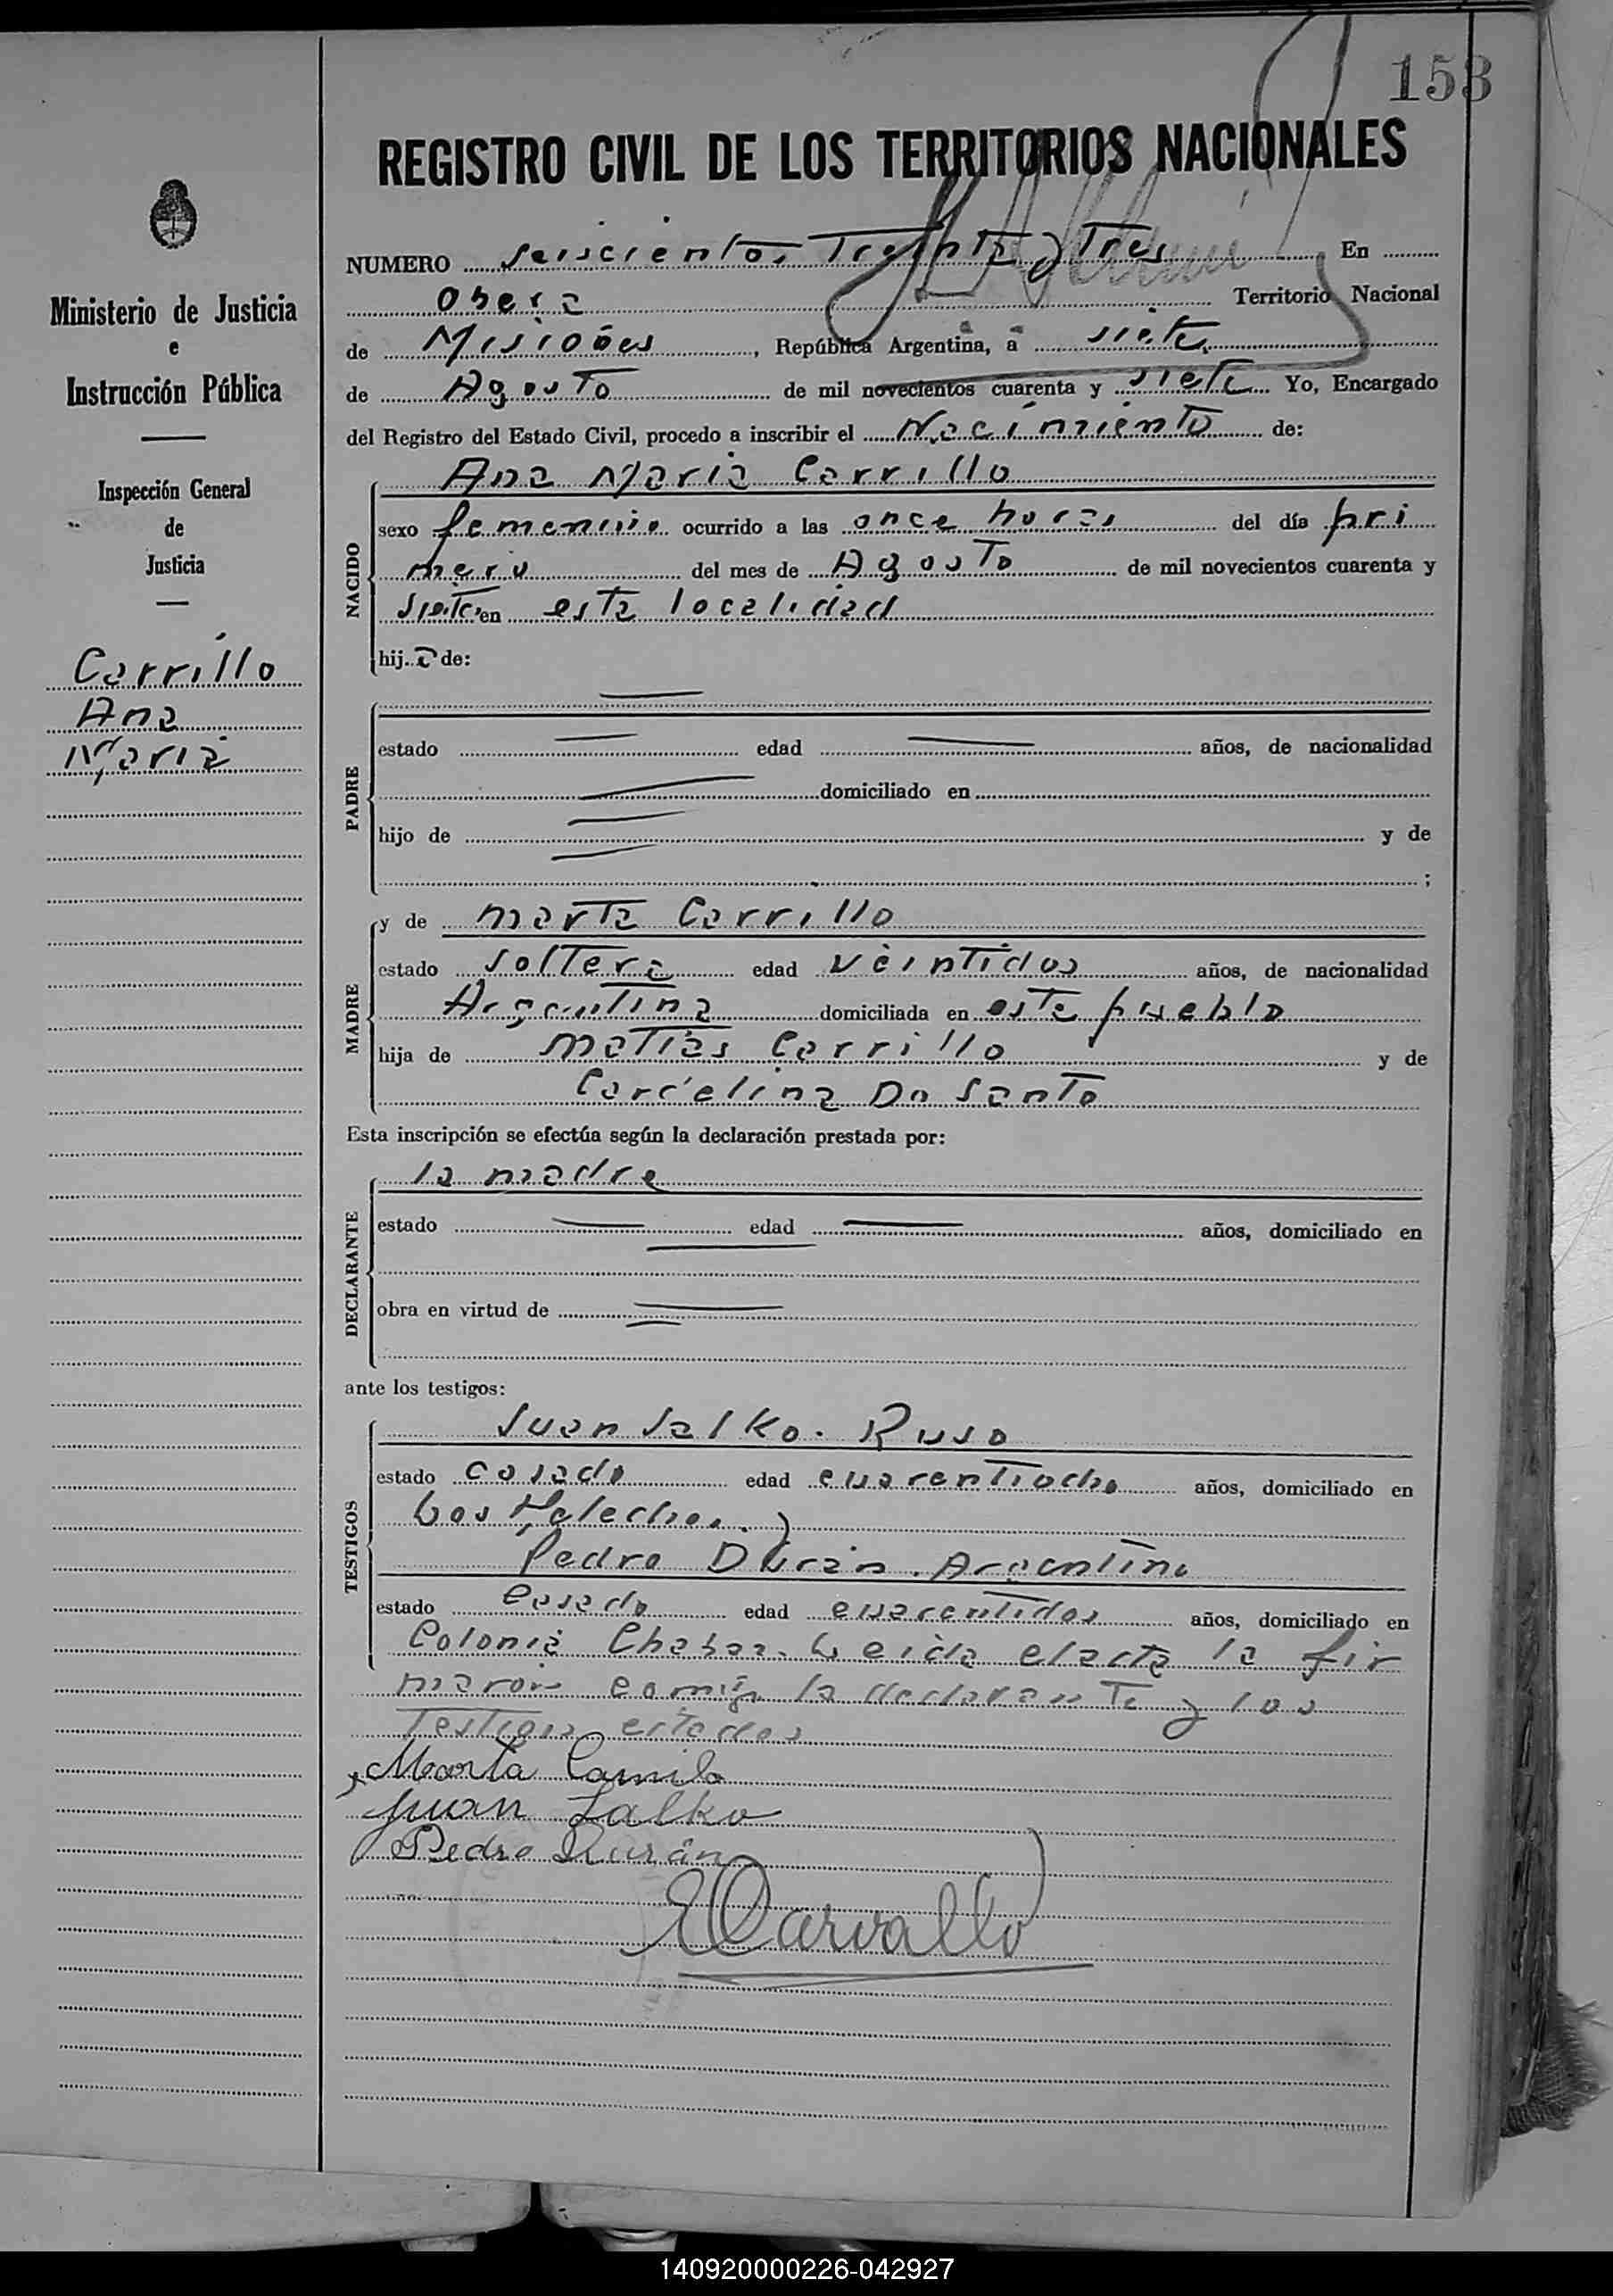 153
REGISTRO CIVIL DE LOS TERRITORIOS NACIONALES
NUMERO seiscientos Treinta y Tres En
Obera Territorio Nacional
de Misiones, República Argentina, a siete
de Agosto de mil novecientos cuarenta y siete Yo, Encargado
del Registro del Estado Civil, procedo a inscribir el Nacimiento de:
Ministerio de Justicia
e
Instrucción Pública
Inspección General
de
Justicia
Carrillo
Ana
Maria
NACIDO
Ana Maria Carrillo
sexo femenino ocurrido a las once horas del día pri
mero del mes de Agosto de mil novecientos cuarenta y
siete en esta localidad
hija de:
PADRE
estado edad años, de nacionalidad
domiciliado en
hijo de y de
;
MADRE
y de Marta Carrillo
estado soltera edad veintidos años, de nacionalidad
Argentina domiciliada en este pueblo
hija de Matias Carrillo y de
Carcelina Do Santo
Esta inscripción se efectúa según la declaración prestada por:
DECLARANTE
la madre
estado edad años, domiciliado en
obra en virtud de
ante los testigos:
TESTIGOS
Juan Salko. Ruso
estado casado edad cuarentiocho años, domiciliado en
Los Helechos.
Pedro Durán. Argentino
estado casado edad cuarentidos años, domiciliado en
Colonia Leida el acta la fir
maron conmigo la declarante y los
Testigos citados
Marta Carrillo
Juan Salko
Pedro Durán
ECarvallo
140920000226-042927